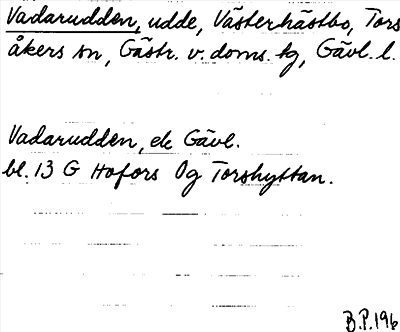 Vadarudden, udde, Västerhästbo, Tors
åkers sn, Gästr. v. doms. tg, Gävl. l.
Vadarudden, ek Gävl.
bl. 13 G Hofors Og Torshyttan.
B.P. 196